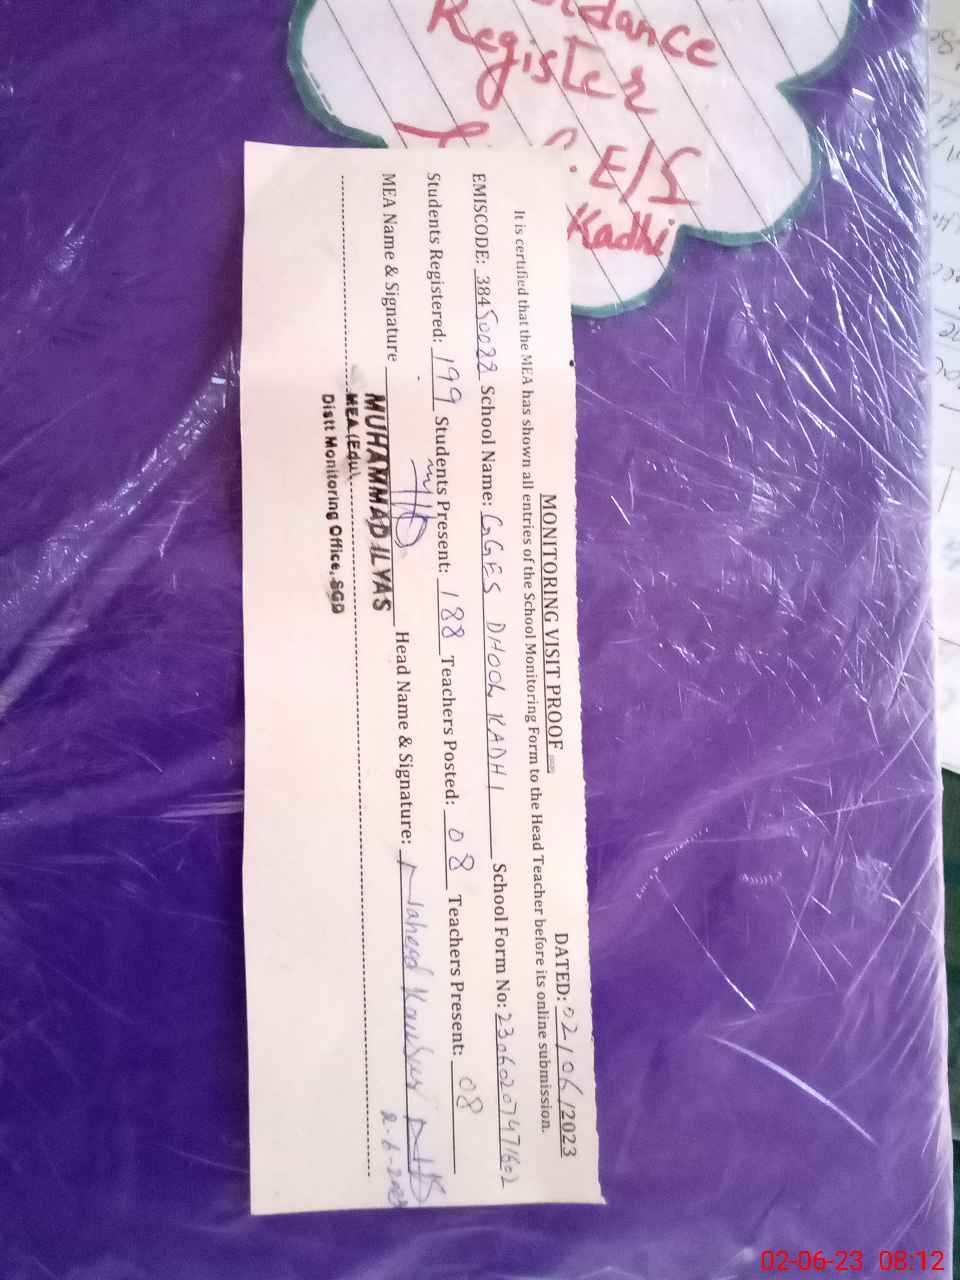 Register
E/S
Kadhi
MONITORING VISIT PROOF
DATED: 02/06/2023
It is certified that the MEA has shown all entries of the School Monitoring Form to the Head Teacher before its online submission.
EMISCODE: 38450022 School Name: GGES DHOCK KADHI School Form No: 23060207471602
Students Registered: 199 Students Present: 188 Teachers Posted: 08 Teachers Present: 08
MEA Name & Signature Head Name & Signature: Naheed Kausar
2-6-2023
MUHAMMAD ILYAS
MEA (Edu)
Distt Monitoring Office, SGD
02-06-23 08:12